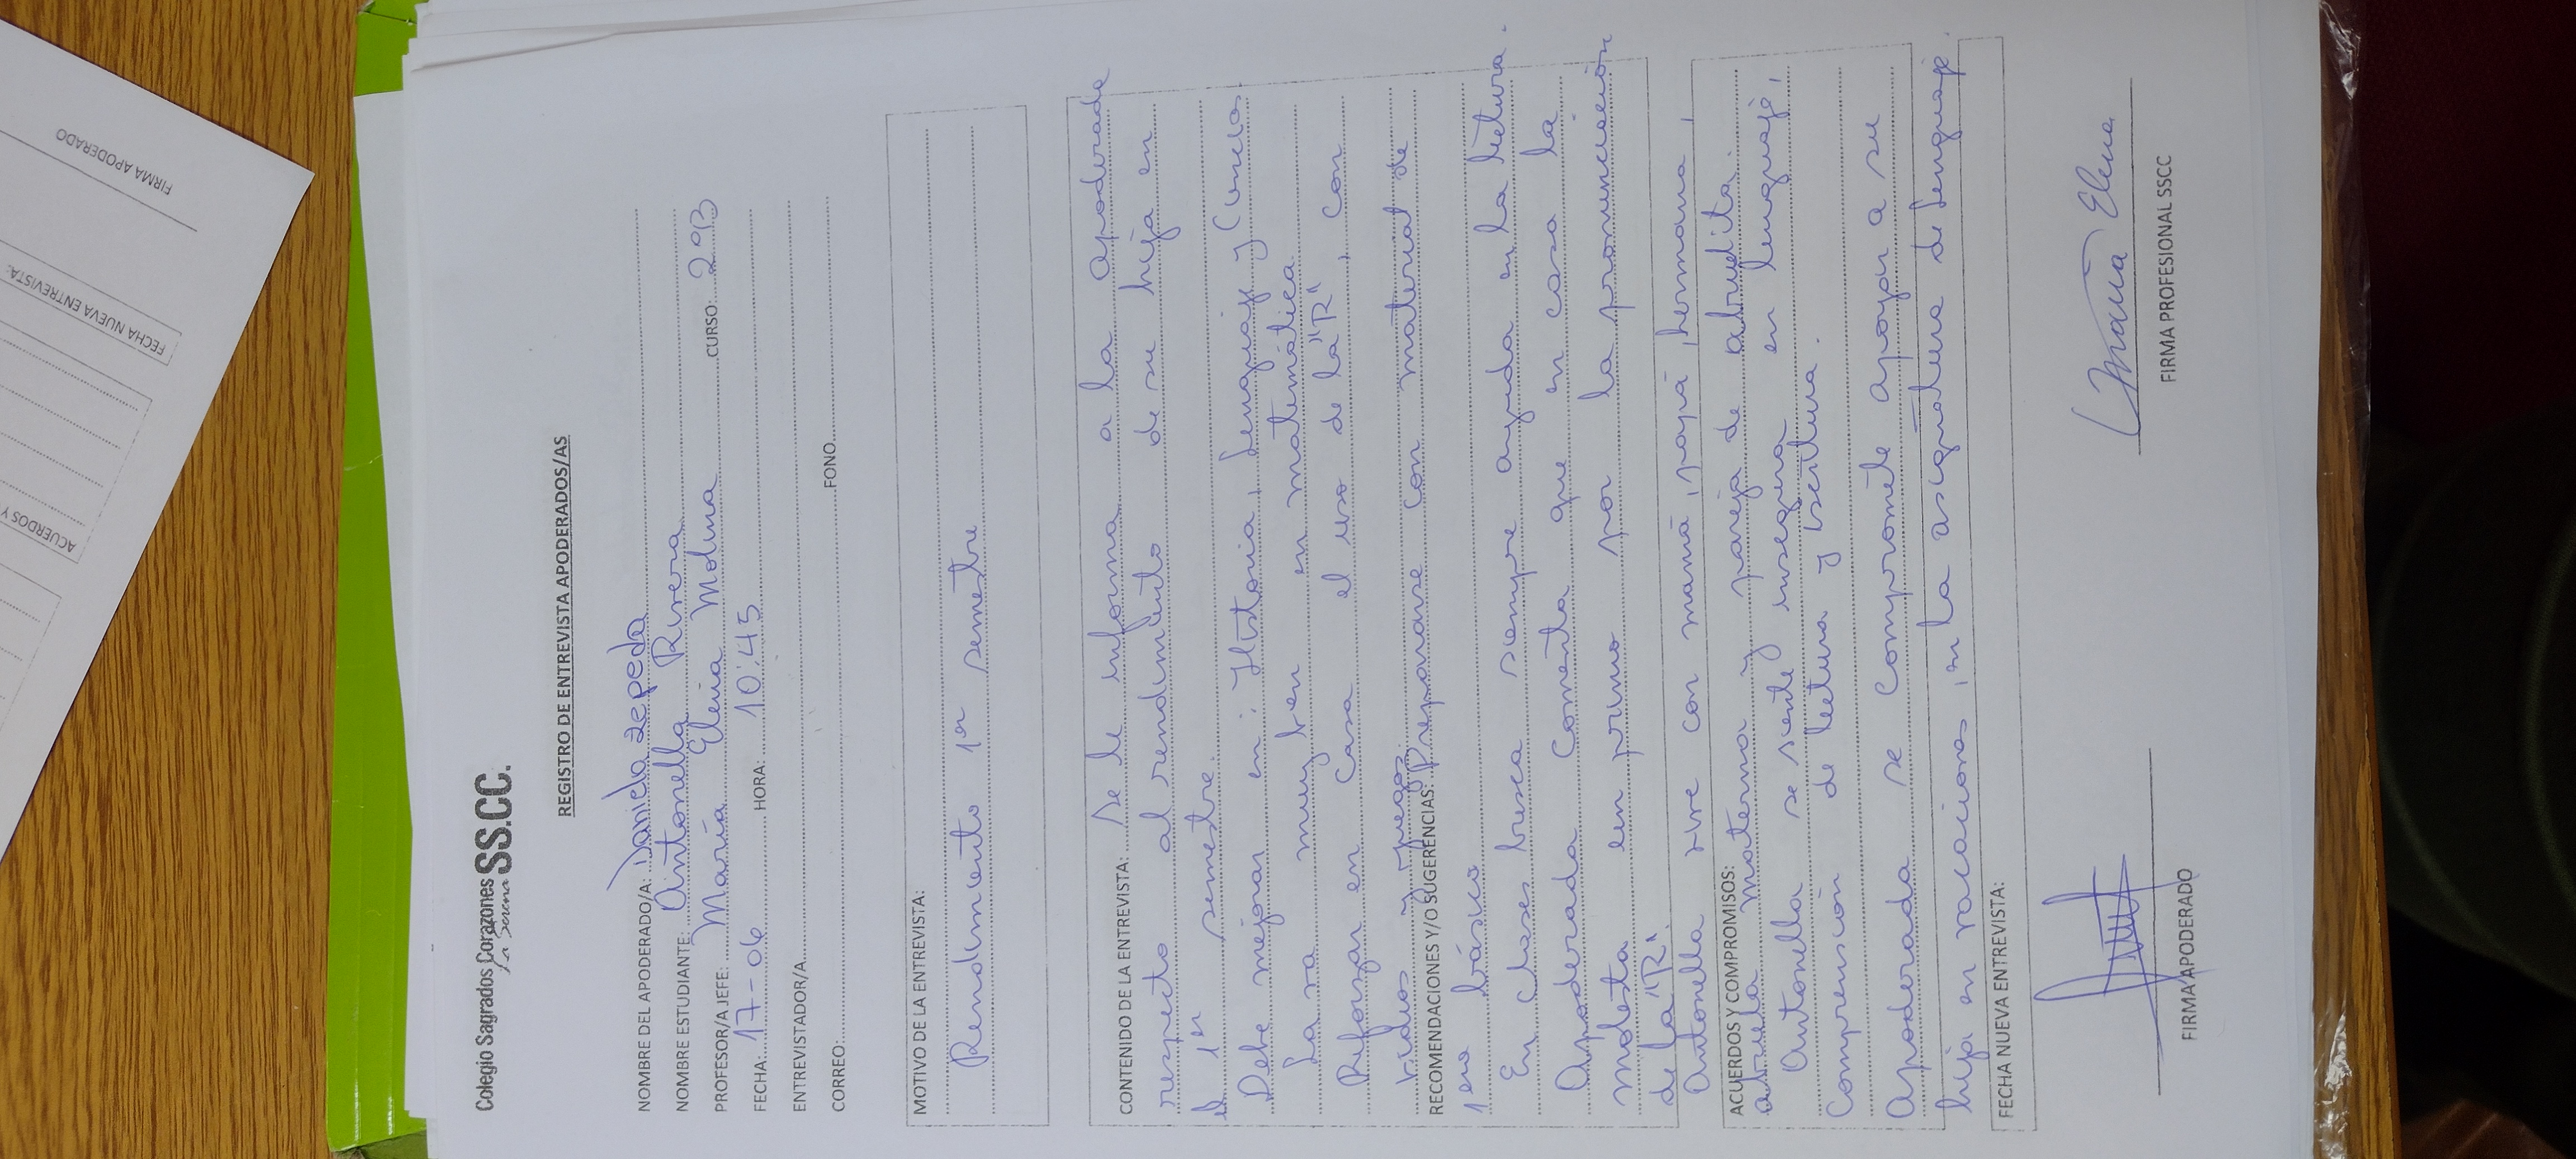 Colegio Sagrados Corazones SS.CC.
La Serena
REGISTRO DE ENTREVISTA APODERADOS/AS
NOMBRE DEL APODERADO/A: Daniela zepeda
NOMBRE ESTUDIANTE: Antonella Rivera
PROFESOR/A JEFE: María Elena Molina CURSO: 2ºB
FECHA: 17-06 HORA: 10:45
ENTREVISTADOR/A
CORREO: FONO
MOTIVO DE LA ENTREVISTA:
Rendimiento 1er semestre
CONTENIDO DE LA ENTREVISTA: Se le informa a la apoderada
respecto al rendimiento de su hija en
el 1er semestre.
Debe mejorar en: Historia, Lenguaje y Ciencias.
La va muy bien en matemática.
Reforzar en casa el uso de la "R", con
videos y juegos.
RECOMENDACIONES Y/O SUGERENCIAS: Prepararse con material de
1ero básico
En clases busca siempre ayuda en la lectura.
Apoderada comenta que en casa la
molesta un primo por la pronunciación
de la "R".
Antonella vive con mamá, papá, hermana,
ACUERDOS Y COMPROMISOS:
abuela materna y pareja de abuelita.
Antonella se siente insegura en lenguaje,
comprensión de lectura y escritura.
Apoderada se compromete apoyar a su
hija en vacaciones, en la asignatura de Lenguaje.
FECHA NUEVA ENTREVISTA:
FIRMA APODERADO
María Elena
FIRMA PROFESIONAL SSCC
ACUERDOS Y
FECHA NUEVA ENTREVISTA:
FIRMA APODERADO